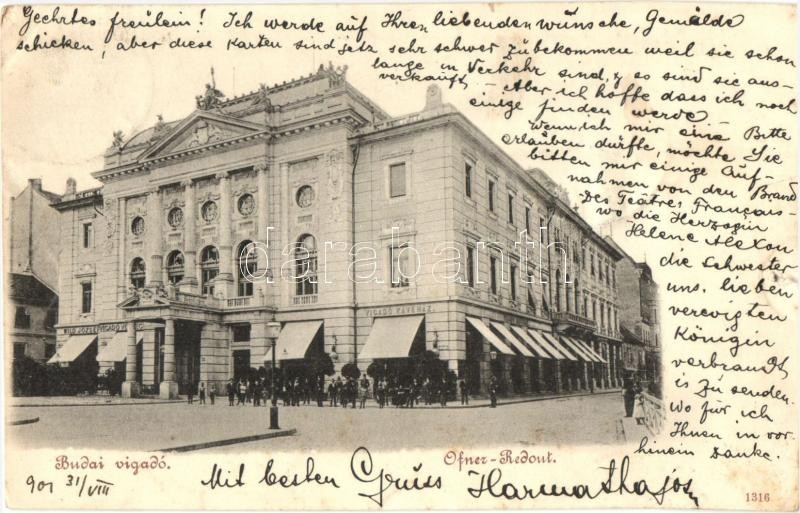 Geehrtes freülein! Ich werde auf Ihren liebenden wünsche, Gemälde
schicken, aber diese Karten sind jetz sehr schwer zübekommen weil sie schon
lange in Verkehr sind, y es sind sie aus-
verkauft. - Aber ich hoffe dass ich noch
einige finden werde. -
Wenn ich mir eine Bitte
erlauben dürfte, möchte Sie
bitten mir einige Auf-
nahmen von den Brand
Des Teätres Français-
wo die Herzogin
Helene Alexon
die schwester
uns. lieben
verevigten
Königin
verbrandt
is zü senden.
Wo für ich
Ihnen in vor-
hinein danke.
WILD JÓZSEF
VIGADÓ KÁVÉHÁZ
darabanth
Budai vigadó.
Ofner-Redout.
901 31/VIII
Mit besten Grüss Harmatha Jos
1316